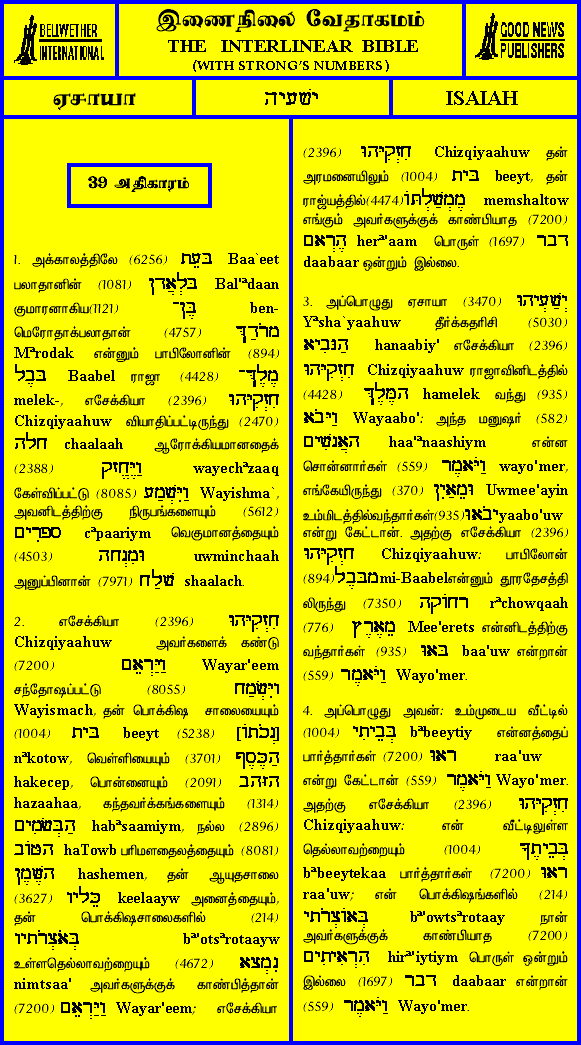 BELLWETHER
INTERNATIONAL
இணைநிலை வேதாகமம்
THE INTERLINEAR BIBLE
(WITH STRONG'S NUMBERS)
GOOD NEWS
PUBLISHERS
ஏசாயா
ישעיה
ISAIAH
39 அதிகாரம்
1. அக்காலத்திலே (6256) בּעת Baa`eet
பலாதானின் (1081) בּלאדן Bal'ªdaan
குமாரனாகிய(1121) בּן־ ben-
மெரோதாக்பலாதான் (4757) מרדך
Mªrodak என்னும் பாபிலோனின் (894)
בּבל Baabel ராஜா (4428) מלך־
melek-, எசேக்கியா (2396) חזקיהוּ
Chizqiyaahuw வியாதிப்பட்டிருந்து (2470)
חלה chaalaah ஆரோக்கியமானதைக்
(2388) ויּחזק wayechªzaaq
கேள்விப்பட்டு (8085) ויּשׁמע Wayishma`,
அவனிடத்திற்கு நிருபங்களையும் (5612)
ספרים cªpaariym வெகுமானத்தையும்
(4503) וּמנחה uwminchaah
அனுப்பினான் (7971) שׁלח shaalach.
2. எசேக்கியா (2396) חזקיהוּ
Chizqiyaahuw அவர்களைக் கண்டு
(7200) ויּראם Wayar'eem
சந்தோஷப்பட்டு (8055) ויּשׂמח
Wayismach, தன் பொக்கிஷ சாலையையும்
(1004) בּית beeyt (5238) [נכתו]
nªkotow, வெள்ளியையும் (3701) הכּסף
hakecep, பொன்னையும் (2091) הזּהב
hazaahaa, கந்தவர்க்கங்களையும் (1314)
הבּשׂמים habªsaamiym, நல்ல (2896)
הטּוב haTowb பரிமளதைலத்தையும் (8081)
השּׁמן hashemen, தன் ஆயுதசாலை
(3627) כּליו keelaayw அனைத்தையும்,
தன் பொக்கிஷசாலைகளில் (214)
בּאצרתיו bª'otsªrotaayw
உள்ளதெல்லாவற்றையும் (4672) נמצא
nimtsaa' அவர்களுக்குக் காண்பித்தான்
(7200) ויּראם Wayar'eem; எசேக்கியா
(2396) חזקיהוּ Chizqiyaahuw தன்
அரமனையிலும் (1004) בּית beeyt, தன்
ராஜ்யத்தில்(4474) ממשׁלתּו memshaltow
எங்கும் அவர்களுக்குக் காண்பியாத (7200)
הראם herª'aam பொருள் (1697) דבר
daabaar ஒன்றும் இல்லை.
3. அப்பொழுது ஏசாயா (3470) ישׁעיהוּ
Yªsha`yaahuw தீர்க்கதரிசி (5030)
הנּביא hanaabiy' எசேக்கியா (2396)
חזקיהוּ Chizqiyaahuw ராஜாவினிடத்தில்
(4428) המּלך hamelek வந்து (935)
ויּבא Wayaabo': அந்த மனுஷர் (582)
האנשׁים haa'ªnaashiym என்ன
சொன்னார்கள் (559) ויּאמר wayo'mer,
எங்கேயிருந்து (370) וּמאין Uwmee'ayin
உம்மிடத்தில்வந்தார்கள்(935) יבאוּ yaabo'uw
என்று கேட்டான். அதற்கு எசேக்கியா (2396)
חזקיהוּ Chizqiyaahuw: பாபிலோன்
(894) מבּבל mi-Baabelஎன்னும் தூரதேசத்தி
லிருந்து (7350) רחוקה rªchowqaah
(776) מארץ Mee'erets என்னிடத்திற்கு
வந்தார்கள் (935) בּאוּ baa'uw என்றான்
(559) ויּאמר Wayo'mer.
4. அப்பொழுது அவன்: உம்முடைய வீட்டில்
(1004) בּביתי bªbeeytiy என்னத்தைப்
பார்த்தார்கள் (7200) ראוּ raa'uw
என்று கேட்டான் (559) ויּאמר Wayo'mer.
அதற்கு எசேக்கியா (2396) חזקיהוּ
Chizqiyaahuw: என் வீட்டிலுள்ள
தெல்லாவற்றையும் (1004) בּביתך
bªbeeytekaa பார்த்தார்கள் (7200) ראוּ
raa'uw; என் பொக்கிஷங்களில் (214)
בּאוצרתי bª'owtsªrotaay நான்
அவர்களுக்குக் காண்பியாத (7200)
הראיתים hirª'iytiym பொருள் ஒன்றும்
இல்லை (1697) דבר daabaar என்றான்
(559) ויּאמר Wayo'mer.